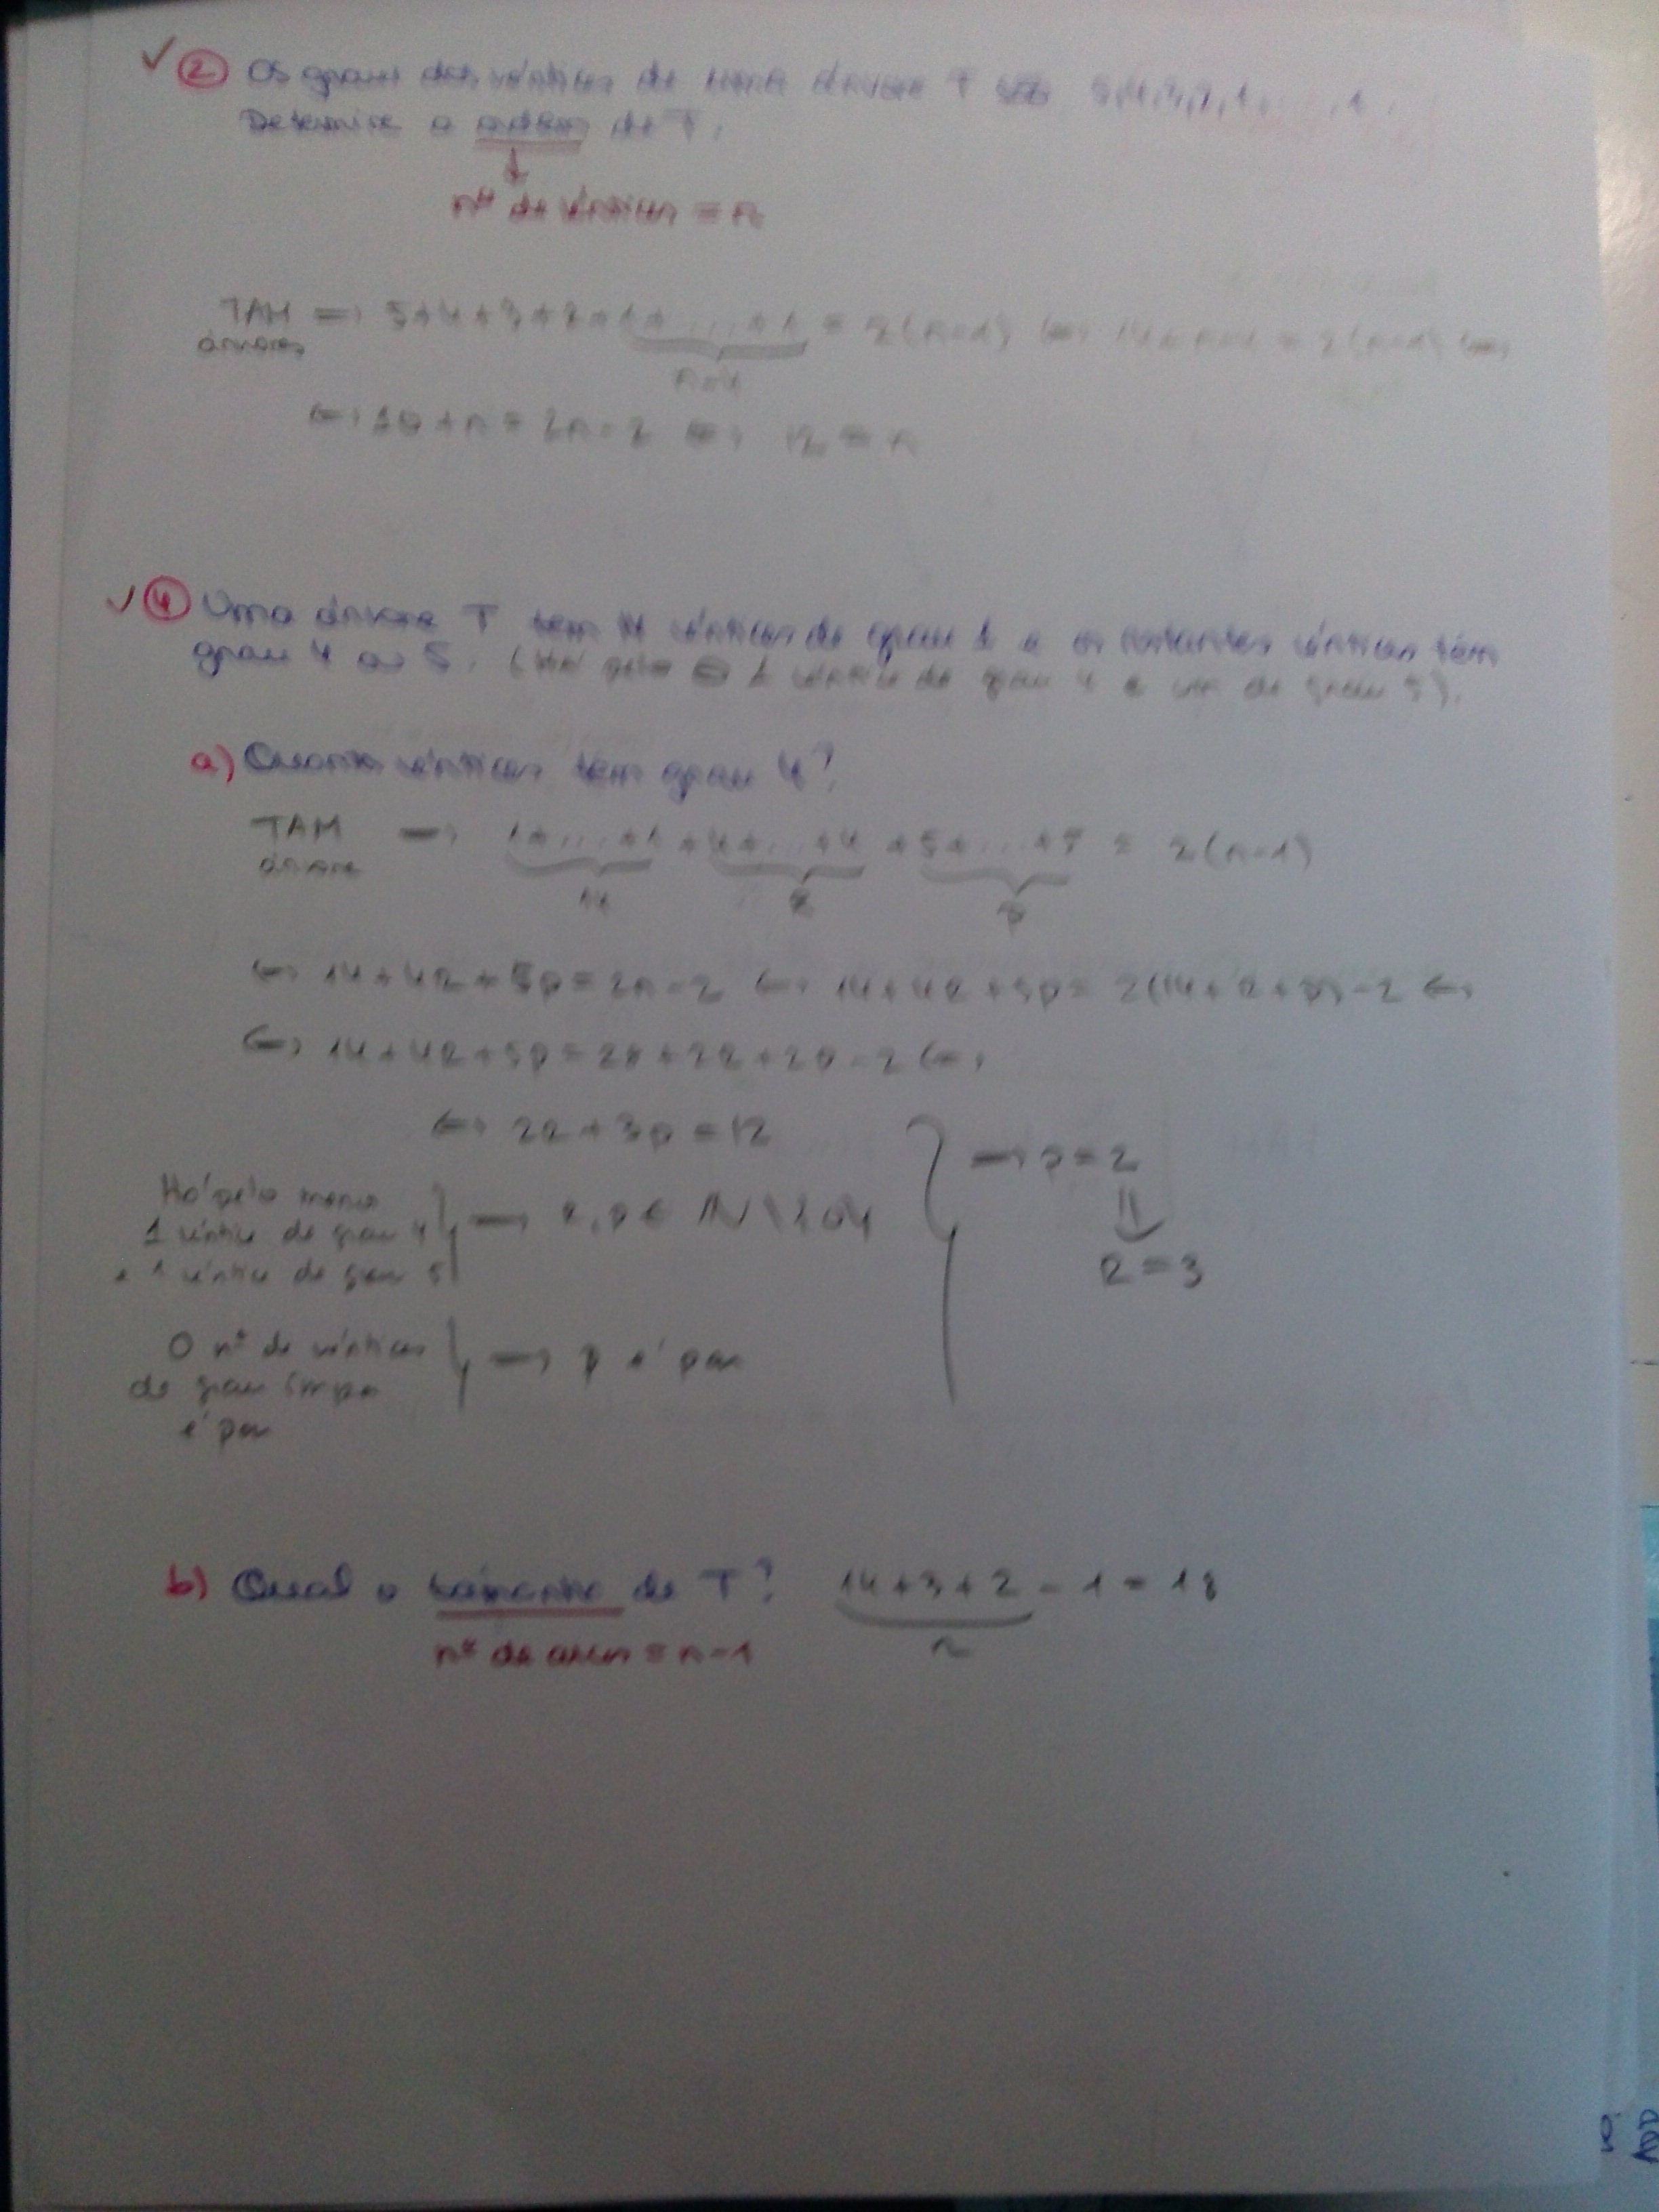 ✓ ② Os graus dos vértices de uma árvore T são 5,4,3,2,1,...,1.
Determine a ordem de T.
↓
nº de vértices = n
TAM => 5+4+3+2+1+...+1 = 2(n-1) <=> 14+n-4 = 2(n-1) <=>
árvores
n-4
<=> 10+n = 2n-2 <=> 12 = n
✓ ④ Uma árvore T tem 14 vértices de grau 1 e os restantes vértices têm
grau 4 ou 5. (Há pelo ⊖ 1 vértice de grau 4 e um de grau 5).
a) Quantos vértices têm grau 4?
TAM => 1+...+1 + 4+...+4 + 5+...+5 = 2(n-1)
árvore
14 k p
<=> 14+4k+5p = 2n-2 <=> 14+4k+5p = 2(14+k+p)-2 <=>
<=> 14+4k+5p = 28+2k+2p-2 <=>
<=> 2k+3p = 12
Há pelo menos
1 vértice de grau 4 } => k,p ∈ ℕ\{0} } => p=2
e 1 vértice de grau 5
⇓
k=3
O nº de vértices
de grau ímpar } => p é par
é par
b) Qual o tamanho de T? 14+3+2 - 1 = 18
nº de arestas = n-1 n
ADD